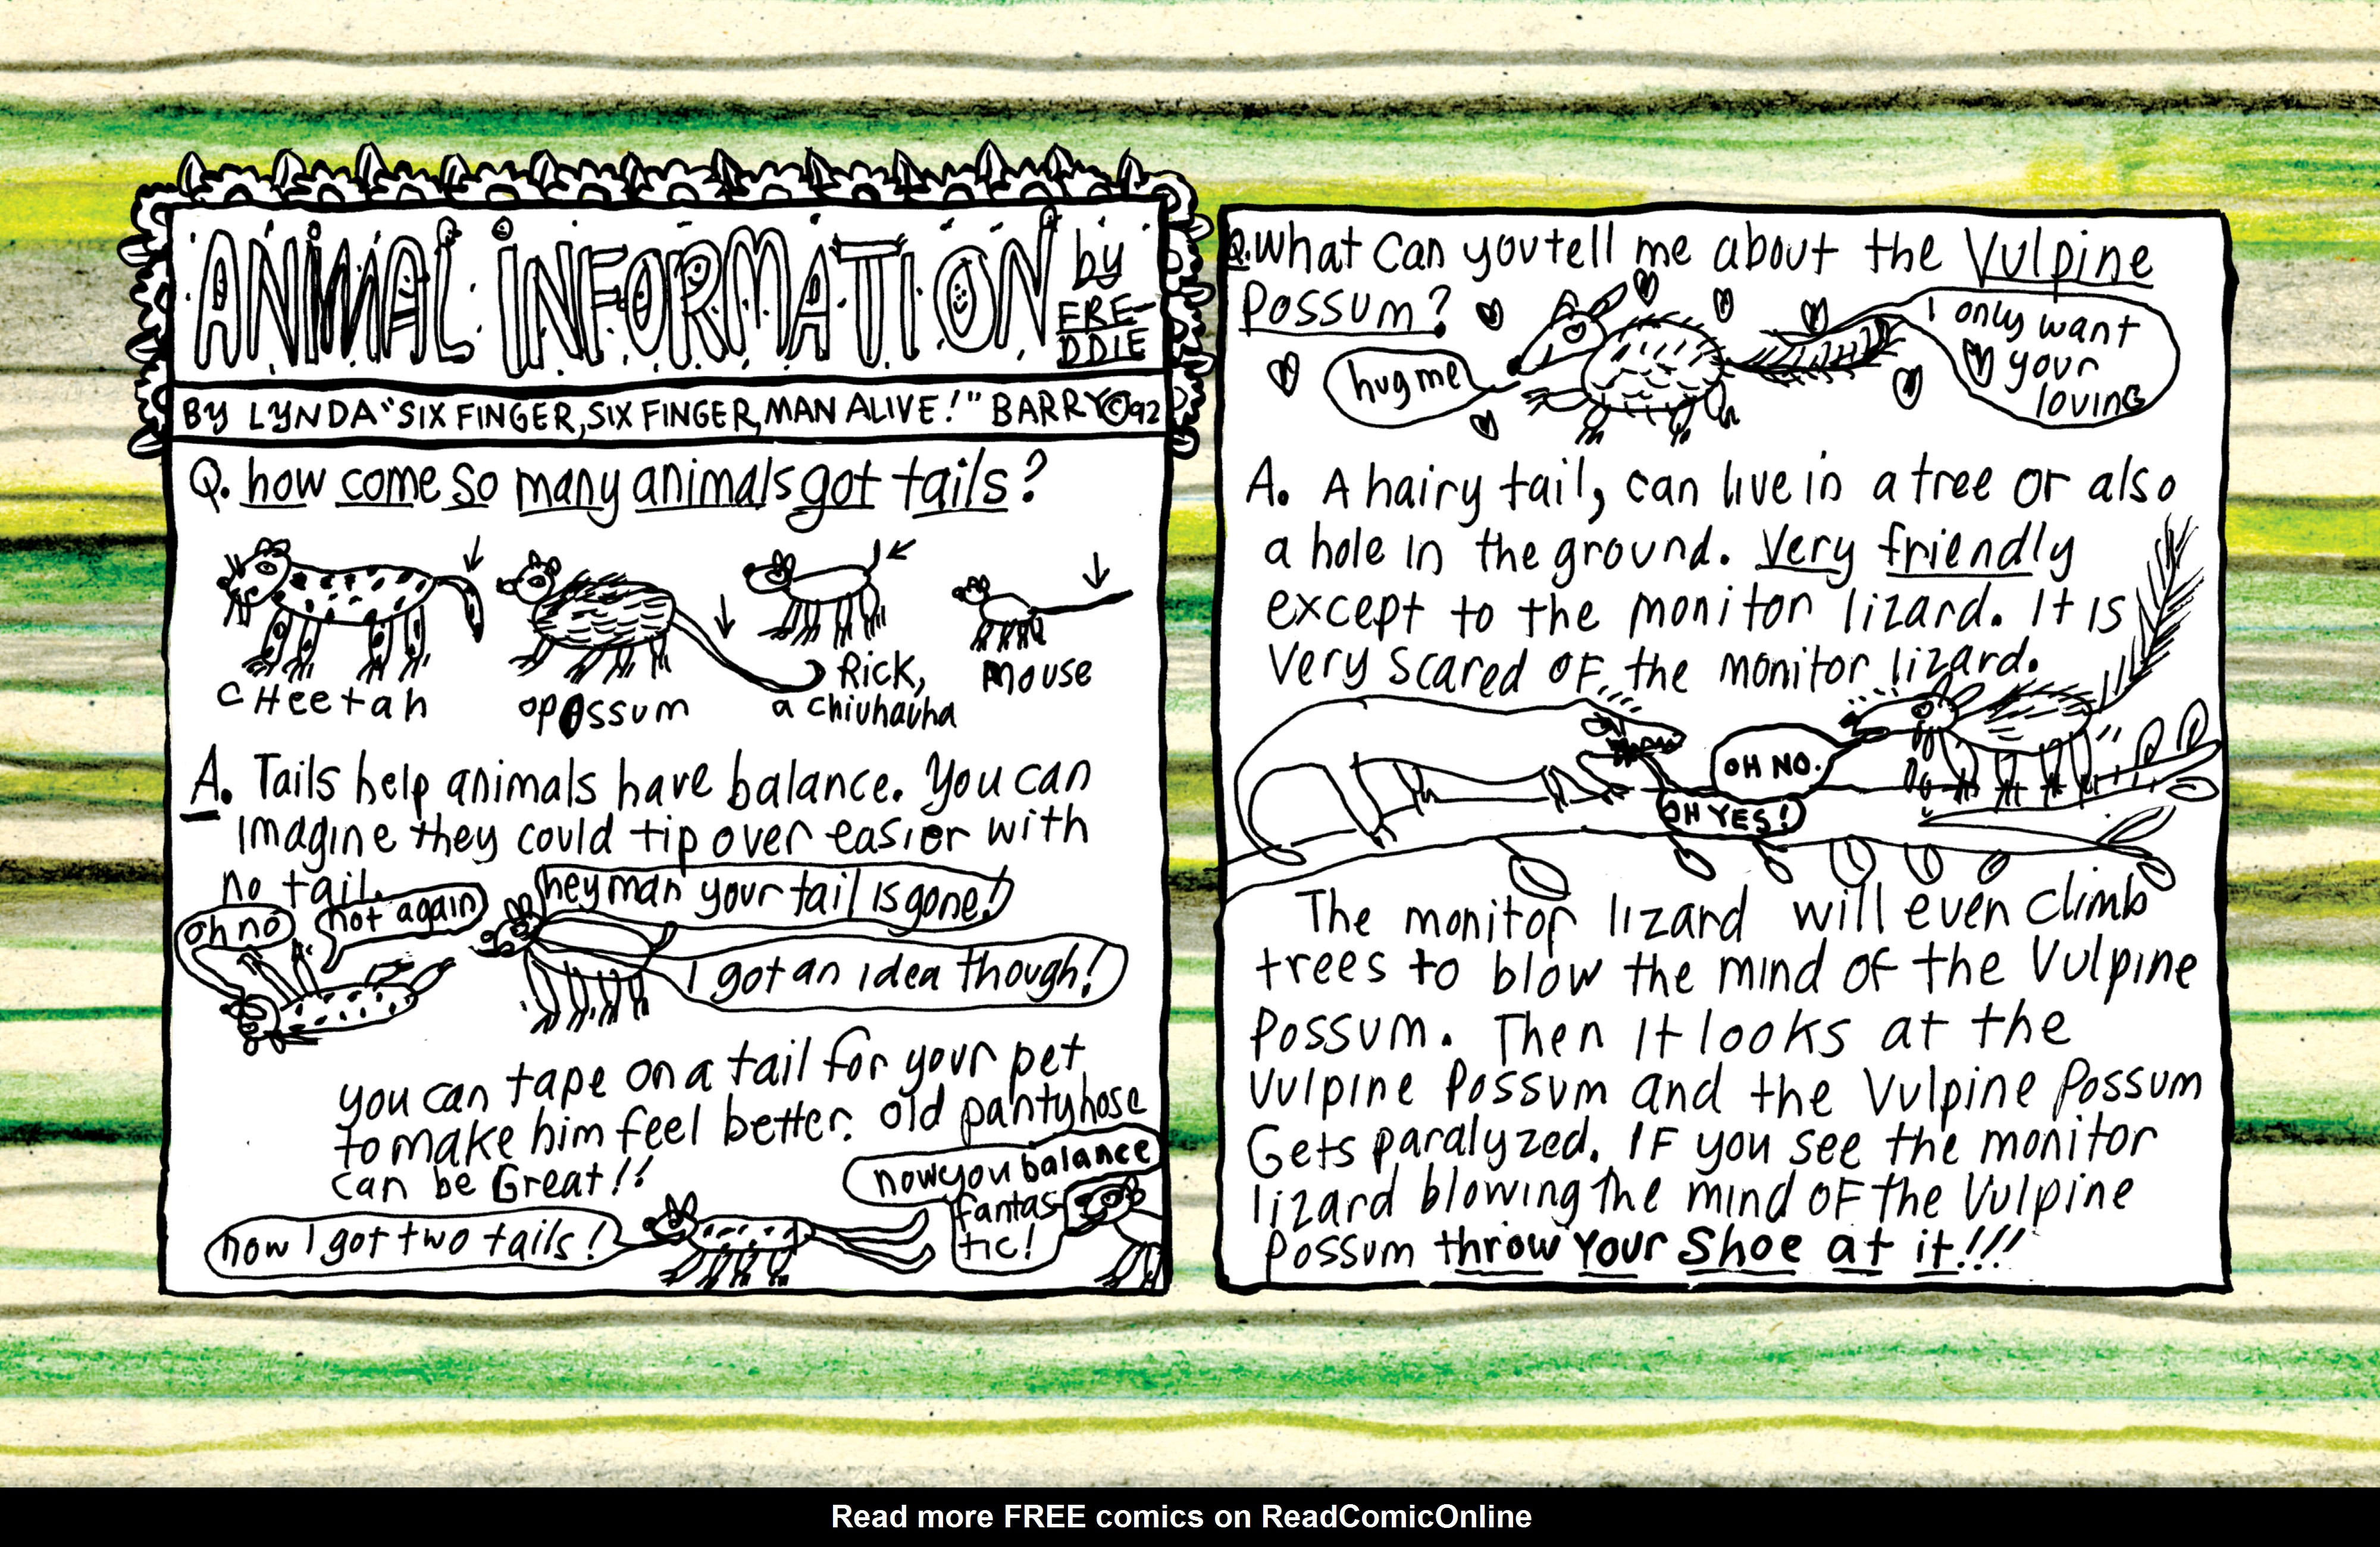 ANIMAL INFORMATION by
FRE-
DDIE
BY LYNDA "SIX FINGER, SIX FINGER, MAN ALIVE!" BARRY © 92
Q. how come so many animals got tails?
CHeetah
opossum
Rick,
a chiuhauha
mouse
A. Tails help animals have balance. You can
imagine they could tip over easier with
no tail.
oh no
not again
hey man your tail is gone!
I got an idea though!
you can tape on a tail for your pet
to make him feel better. old pantyhose
can be Great!!
now I got two tails!
now you balance
fantas-
tic!
Q. What can you tell me about the Vulpine
Possum?
hug me
I only want
your
loving
A. A hairy tail, can live in a tree or also
a hole in the ground. Very friendly
except to the monitor lizard. It is
very scared OF the monitor lizard.
OH NO.
OH YES!
The monitor lizard will even climb
trees to blow the mind of the Vulpine
Possum. Then it looks at the
Vulpine Possum and the Vulpine Possum
Gets paralyzed. IF you see the monitor
lizard blowing the mind OF the Vulpine
Possum throw Your Shoe at it!!!
Read more FREE comics on ReadComicOnline